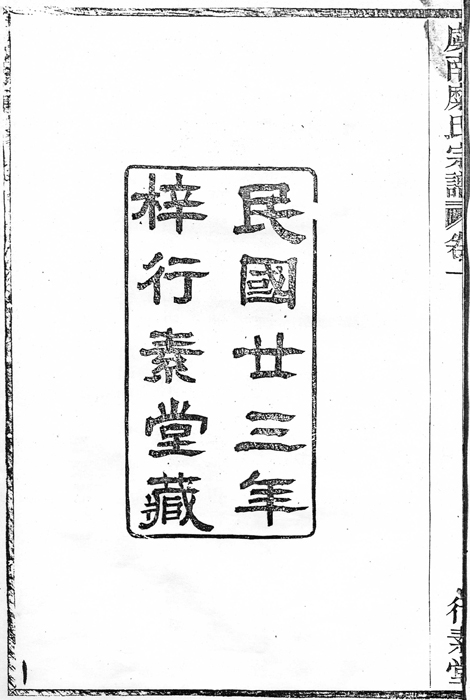 民國廿三年
梓行素堂藏
南
氏宗譜
卷一
行素堂